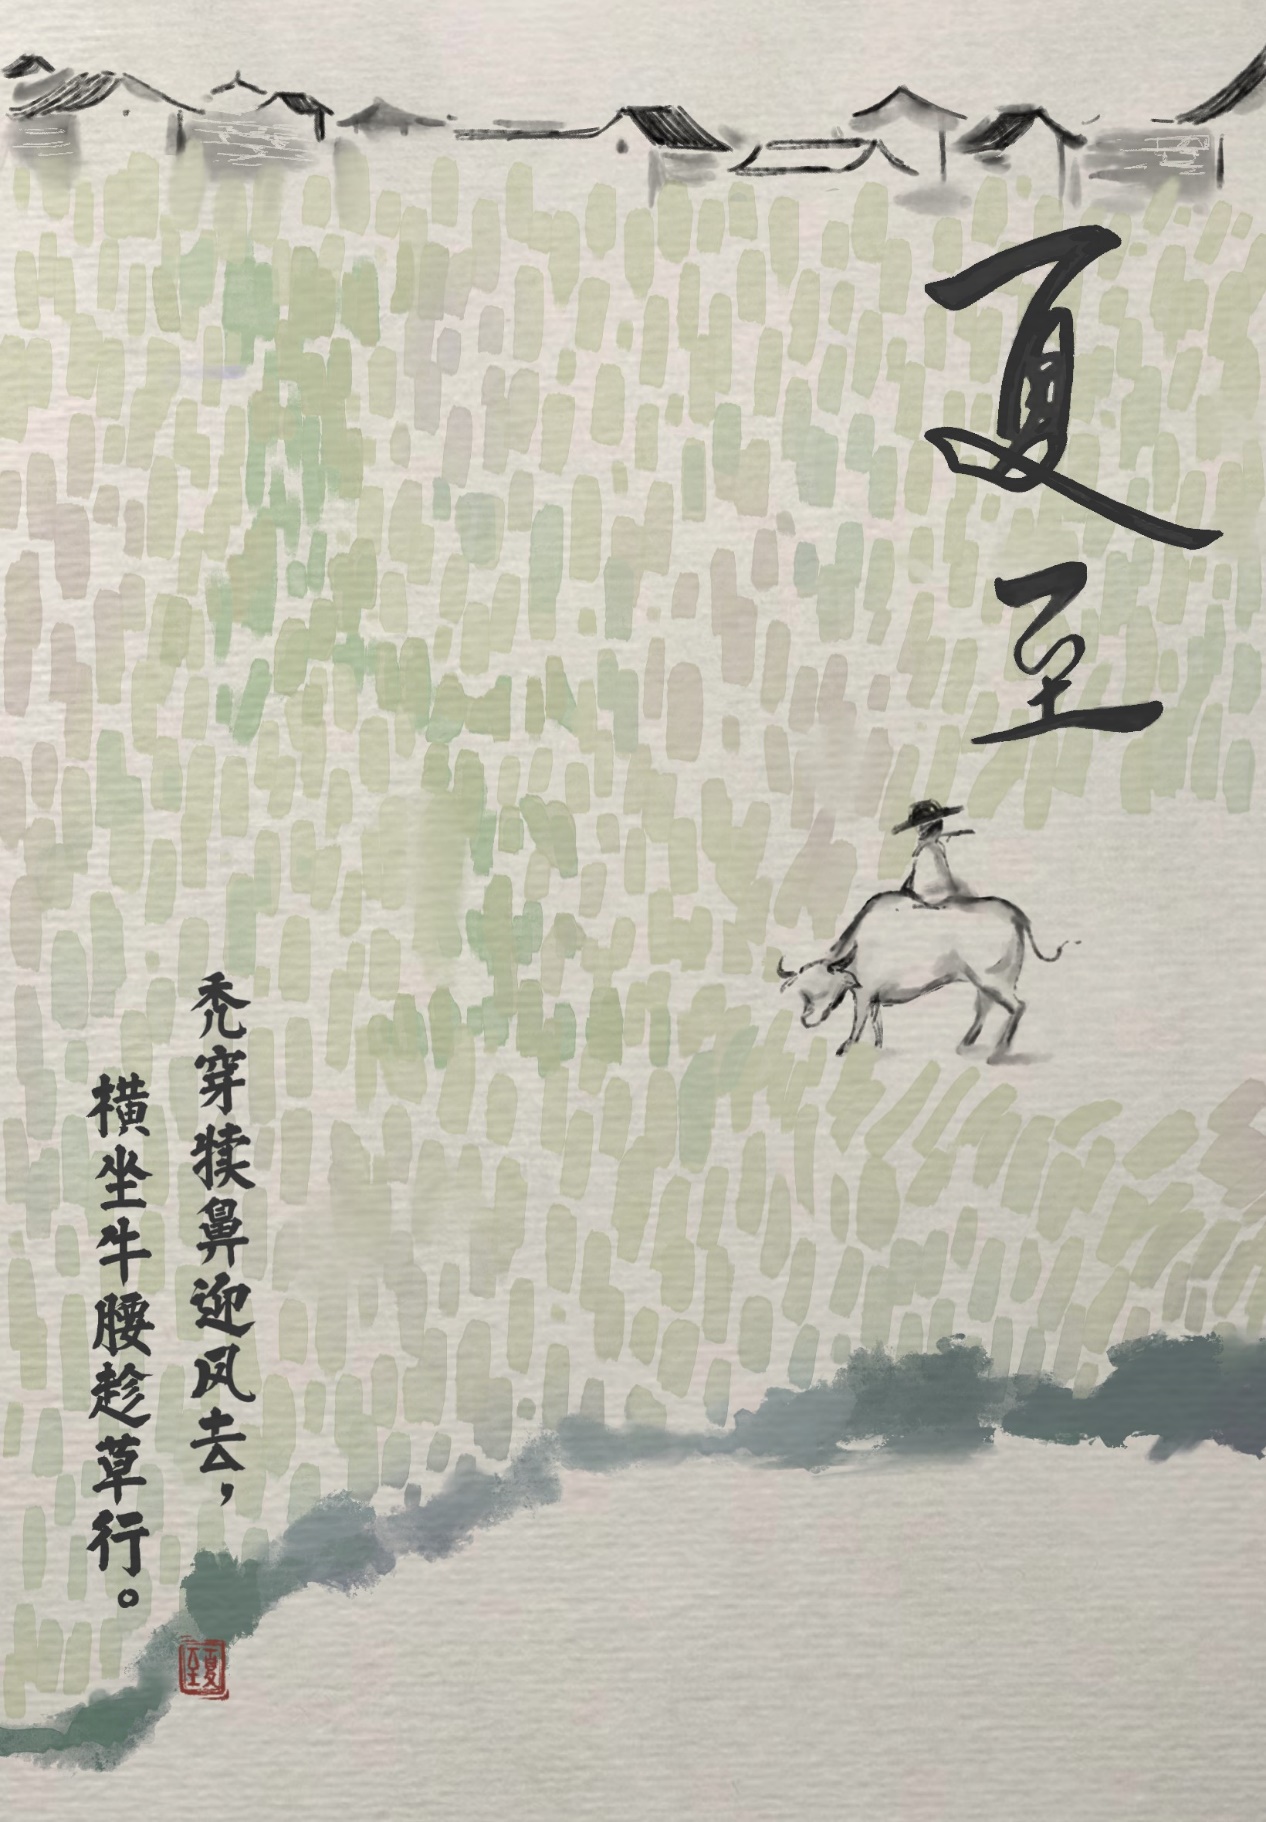 夏至
秃穿犊鼻迎风去，
横坐牛腰趁草行。
夏至